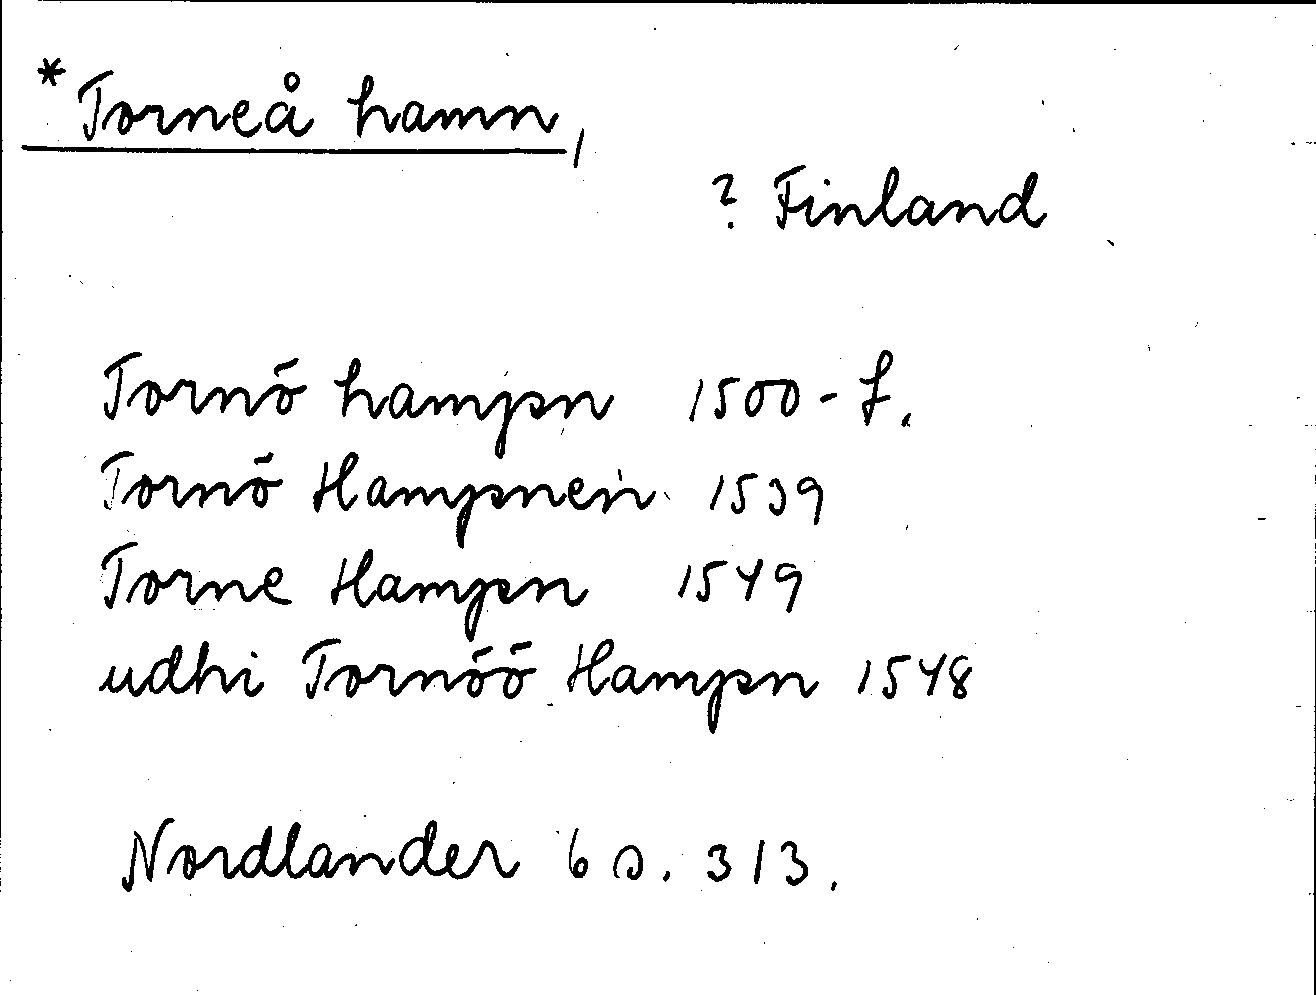 *Torneå hamn,
? Finland
Tornö hampn 1500-t.
Tornö Hampnen 1539
Torne Hampn 1549
udhi Tornöö Hampn 1548
Nordlander 6 s. 313.